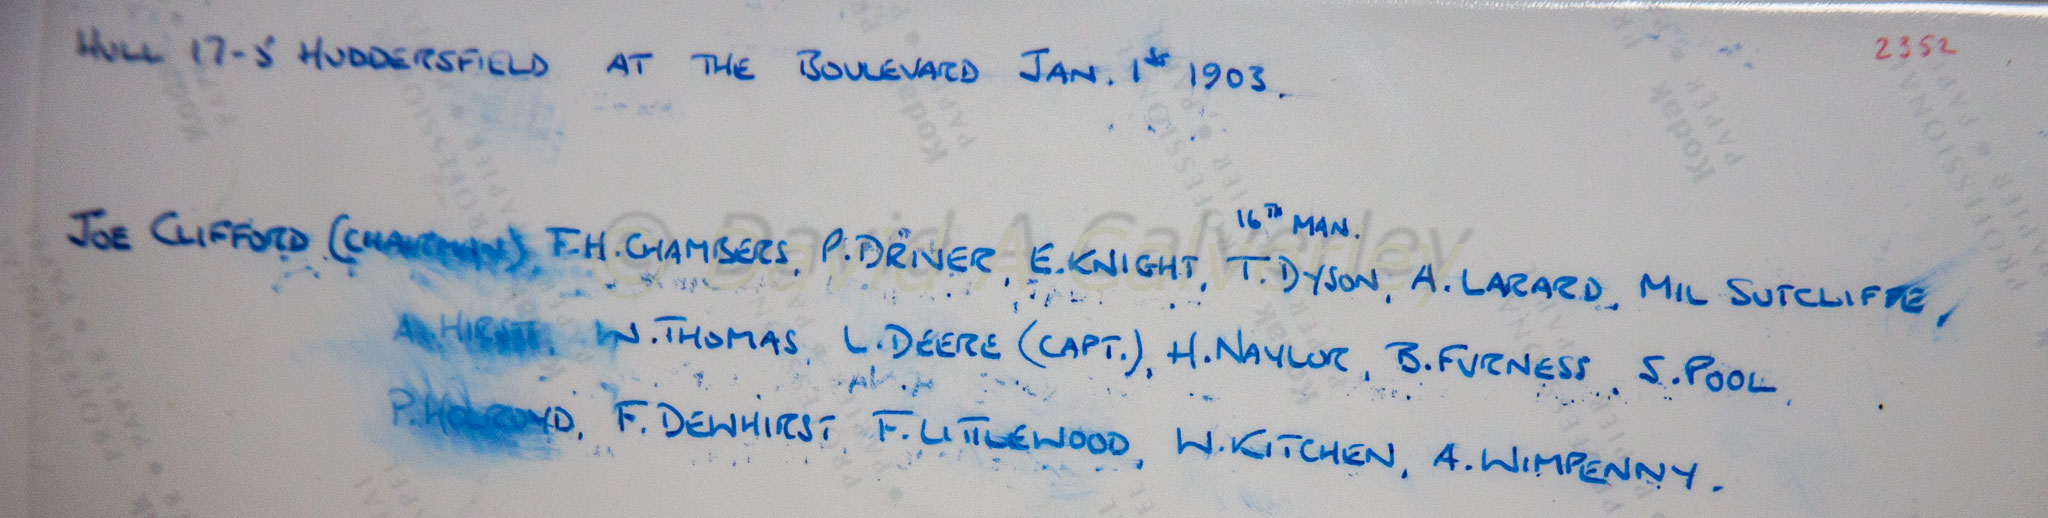 HULL 17-5 HUDDERSFIELD AT THE BOULEVARD JAN. 1st 1903.
2352
16TH MAN.
JOE CLIFFORD (CHAIRMAN), F.H. CHAMBERS, P. DRIVER E. KNIGHT, T. DYSON, A. LARARD, MIL SUTCLIFFE,
A. HIRST, W. THOMAS, L. DEERE (CAPT.), H. NAYLOR, B. FURNESS, S. POOL,
P. HOLROYD, F. DEWHIRST F. LITTLEWOOD, W. KITCHEN, A. WIMPENNY.
© David A Calverley
Kodak
PAPIER
PROFESSIONAL
PAPER